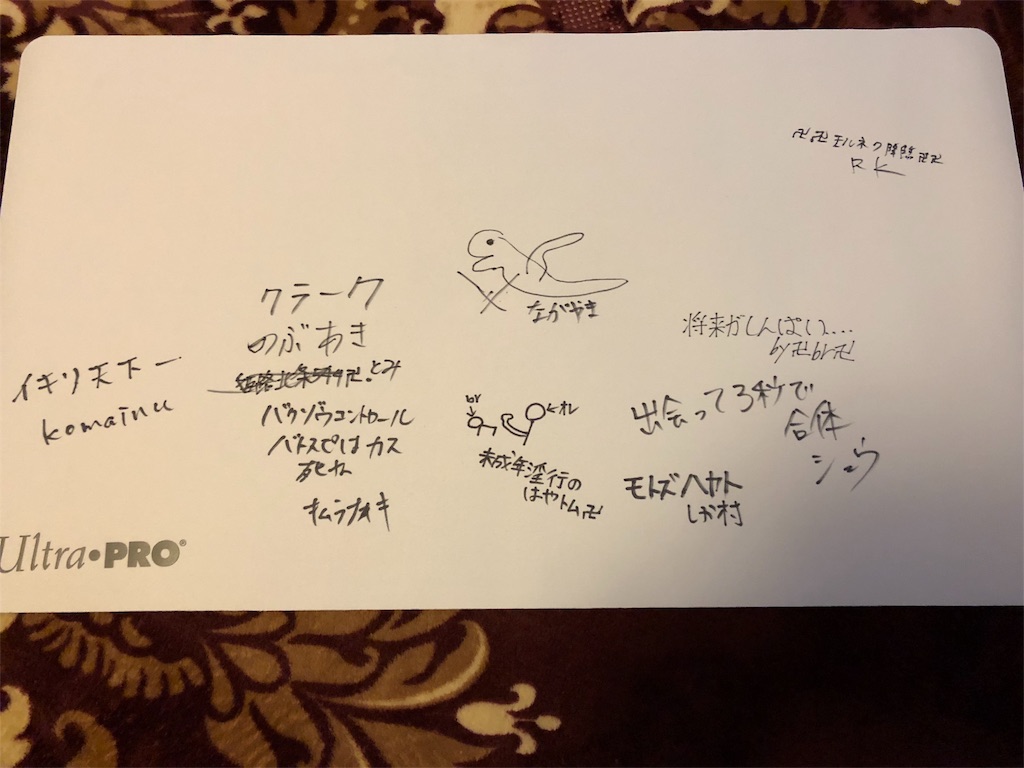 卍卍モルネク降臨卍卍
RK
ながやま
クラーク
のぶあき
卍.とみ
将来がしんぱい…
by卍br卍
イキリ天下一
komainu
バクゾウコントロール
バトスピはカス
死ね
キムラナオキ
br
オレ
未成年淫行の
はやトム卍
出会って3秒で
合体
シュウ
モトズハヤト
しが村
Ultra•PRO®